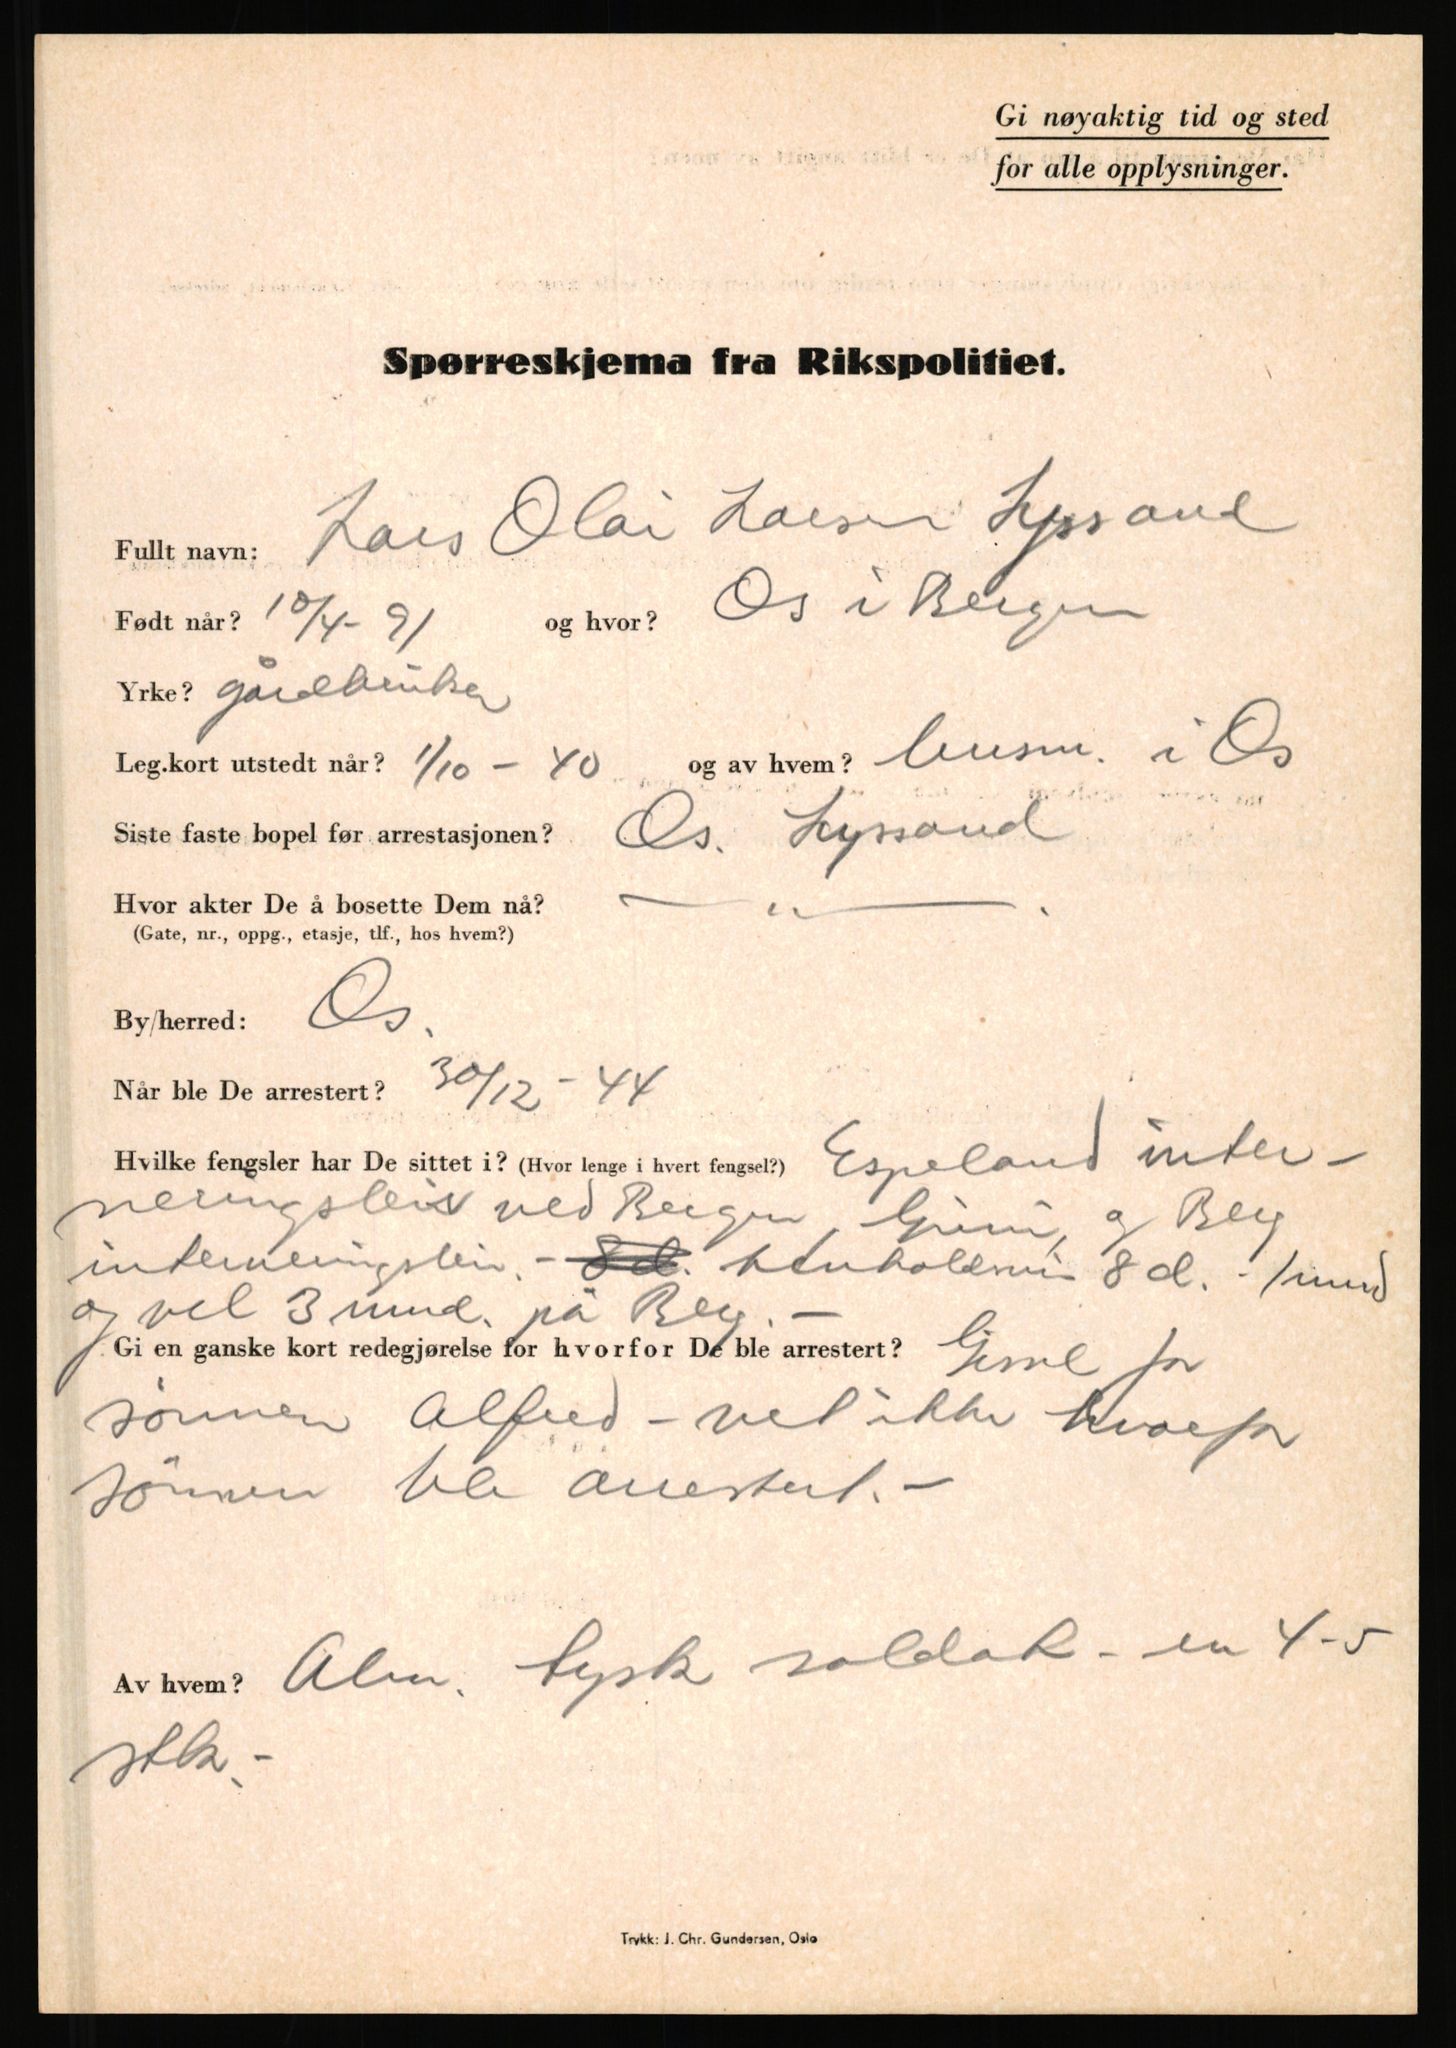 Gi nøyaktig tid og sted
for alle opplysninger.
Spørreskjema fra Rikspolitiet.
Fullt navn: Lars Olai Larsen Lyssand
Født når? 10/4-91 og hvor? Os i Bergen
Yrke? gårdbruker
Leg.kort utstedt når? 1/10 - 40 og av hvem? i Os
Siste faste bopel før arrestasjonen? Os. Lyssand
Hvor akter De å bosette Dem nå? — " — .
(Gate, nr., oppg., etasje, tlf., hos hvem?)
By/herred: Os.
Når ble De arrestert? 30/12 - 44
Hvilke fengsler har De sittet i? (Hvor lenge i hvert fengsel?) Espeland inter-
neringsleir ved Bergen, Grini, og Berg
interneringsleir. - 8 d. henholdsvis 8 d. - 1 mnd
og vel 3 mnd. på Berg. -
Gi en ganske kort redegjørelse for hvorfor De ble arrestert? Gissel for
sönnen Alfred - vet ikke hvorfor
sönnen ble arrestert. -
Av hvem? Alm. tysk soldat - en 4-5
stk. -
Trykk: J. Chr. Gundersen, Oslo